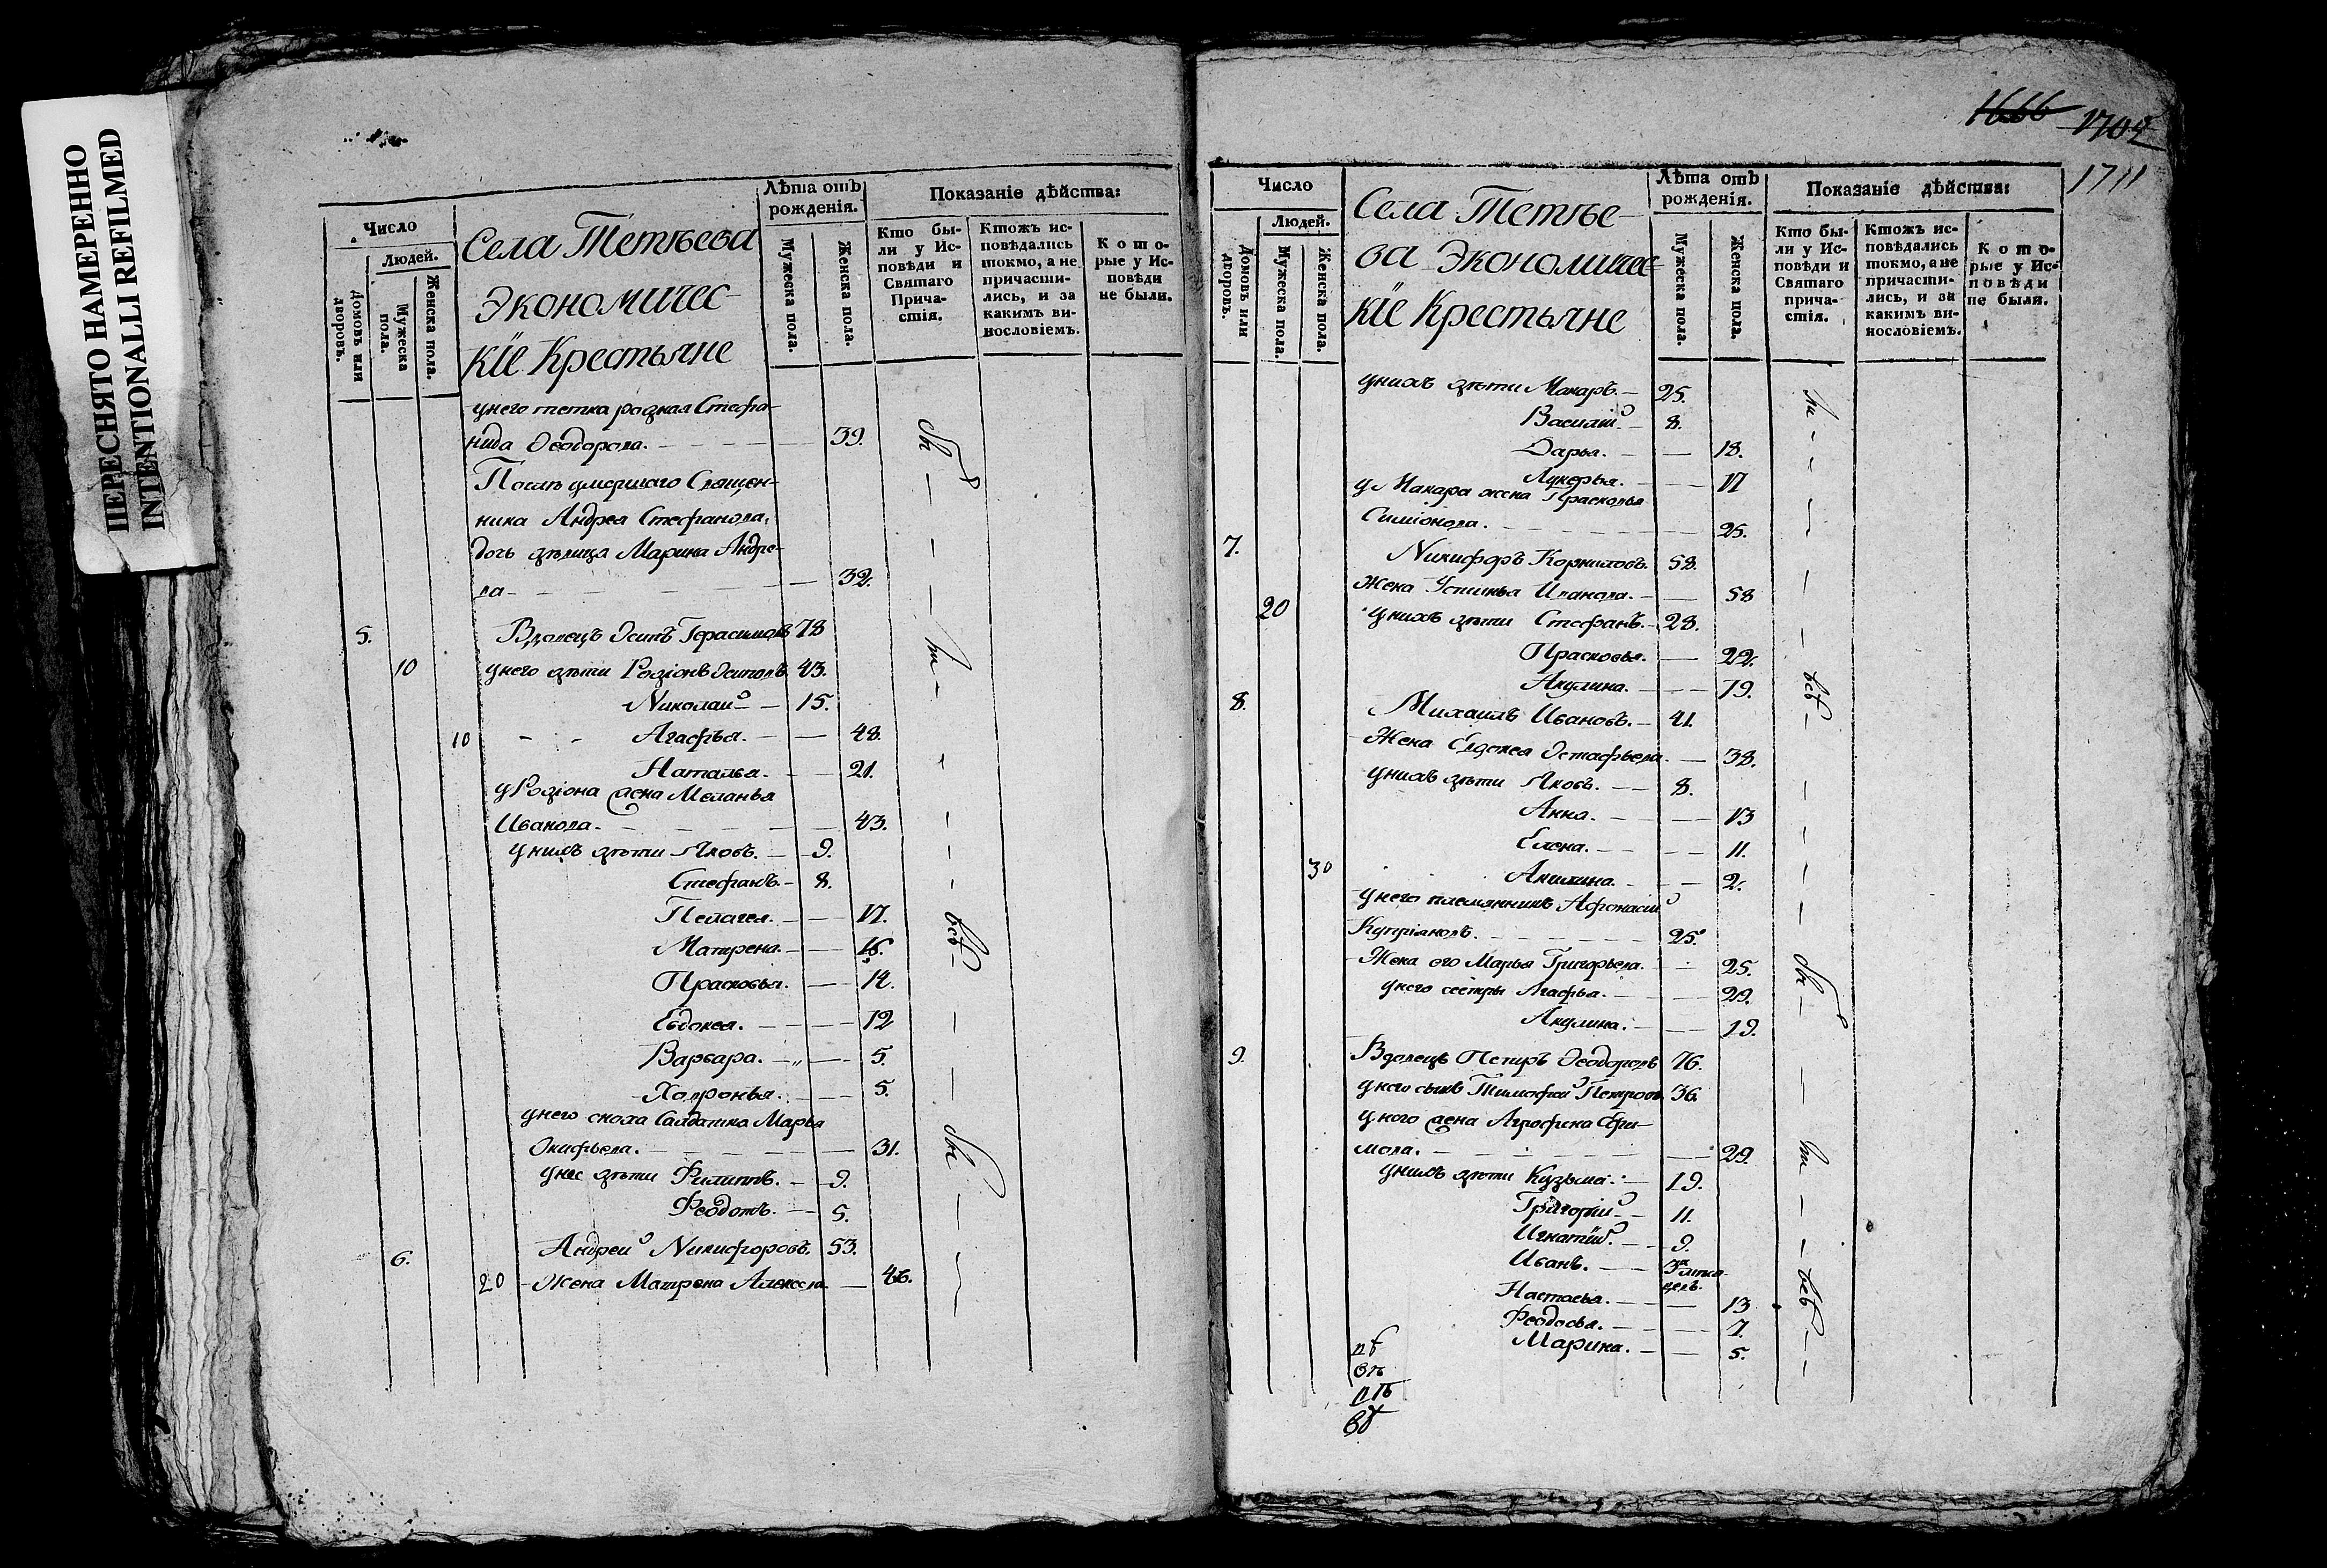 ПЕРЕСНЯТО НАМЕРЕННО
INTENTIONALLI REFILMED
Число
Людей.
Домовъ или дворовъ.
Мужеска пола.
Женска пола.
Села Тетѣева
Экономичес-
кїе Крестьяне
Лѣта отъ рожденія.
Мужеска пола.
Женска пола.
Показаніе дѣйства:
Кто бы-
ли у Ис-
повѣди и
Святаго
Прича-
стія.
Ктожъ ис-
повѣдались
токмо, а не
причасти-
лись, и за
какимъ ви-
нословіемъ.
Кото-
рые у Ис-
повѣди
не были.
у него тетка родная Стефа-
нида Ѳеодорова. 39.
Послѣ умершаго Священ-
ника Андрея Стефанова,
дочь дѣвица Марина Андре-
ва 32.
5. Вдовецъ Осипъ Герасимовъ 78
10 у него дѣти Родіонъ Осиповъ 43.
Николай 15.
10 Агафья. 48.
Наталья. 21.
у Родіона жена Меланья
Иванова. 43.
у нихъ дѣти Яковъ. 9.
Стефанъ. 8.
Пелагея. 17.
Матрена. 16.
Прасковья. 14.
Евдокея. 12
Варвара. 5.
Хавронья. 5.
у него сноха Салдатка Марья
Окифьева. 31.
у нее дѣти Филиппъ. 9.
Феодотъ. 5.
6. Андрей Никифоровъ. 53.
20 Жена Матрена Алексева 46.
всѣ
1666
1704
1711
Число
Людей.
Домовъ или дворовъ.
Мужеска пола.
Женска пола.
Села Тетѣе-
ва Экономичес-
кїе Крестьяне
Лѣта отъ рожденія.
Мужеска пола.
Женска пола.
Показаніе дѣйства:
Кто бы-
ли у Ис-
повѣди и
Святаго
прича-
стія.
Ктожъ ис-
повѣдались
токмо, а не
причасти-
лись, и за
какимъ ви-
нословіемъ.
Кото-
рые у Ис-
повѣди
не были.
у нихъ дѣти Макаръ. 25.
Василій 8.
Дарья. 18.
Лукерья. 17
у Макара жена Прасковья
Симіонова. 25.
7. Никифоръ Корниловъ. 58.
Жена Устинья Иванова. 58
20 у нихъ дѣти Стефанъ. 28.
Прасковья. 22.
Акулина. 19.
8. Михаилъ Ивановъ. 41.
Жена Евдокея Остафьева. 38.
у нихъ дѣти Яковъ. 8.
Анна. 13
Елена. 11.
30 Акилина. 2.
у него племянникъ Афонасій
Купріановъ. 25.
Жена его Марья Григорьева. 25.
у него сестры Агафья. 29.
Акулина. 19.
9. Вдовецъ Петръ Ѳеодоровъ 76.
у него сынъ Тимофей Петровъ. 36.
у него жена Агрофина Ефи-
мова. 29.
у нихъ дѣти Кузьма. 19.
Григорій 11.
Игнатій. 9.
Иванъ.
Настасья. 13
Феодосья. 7.
Марина. 5.
всѣ
всѣ